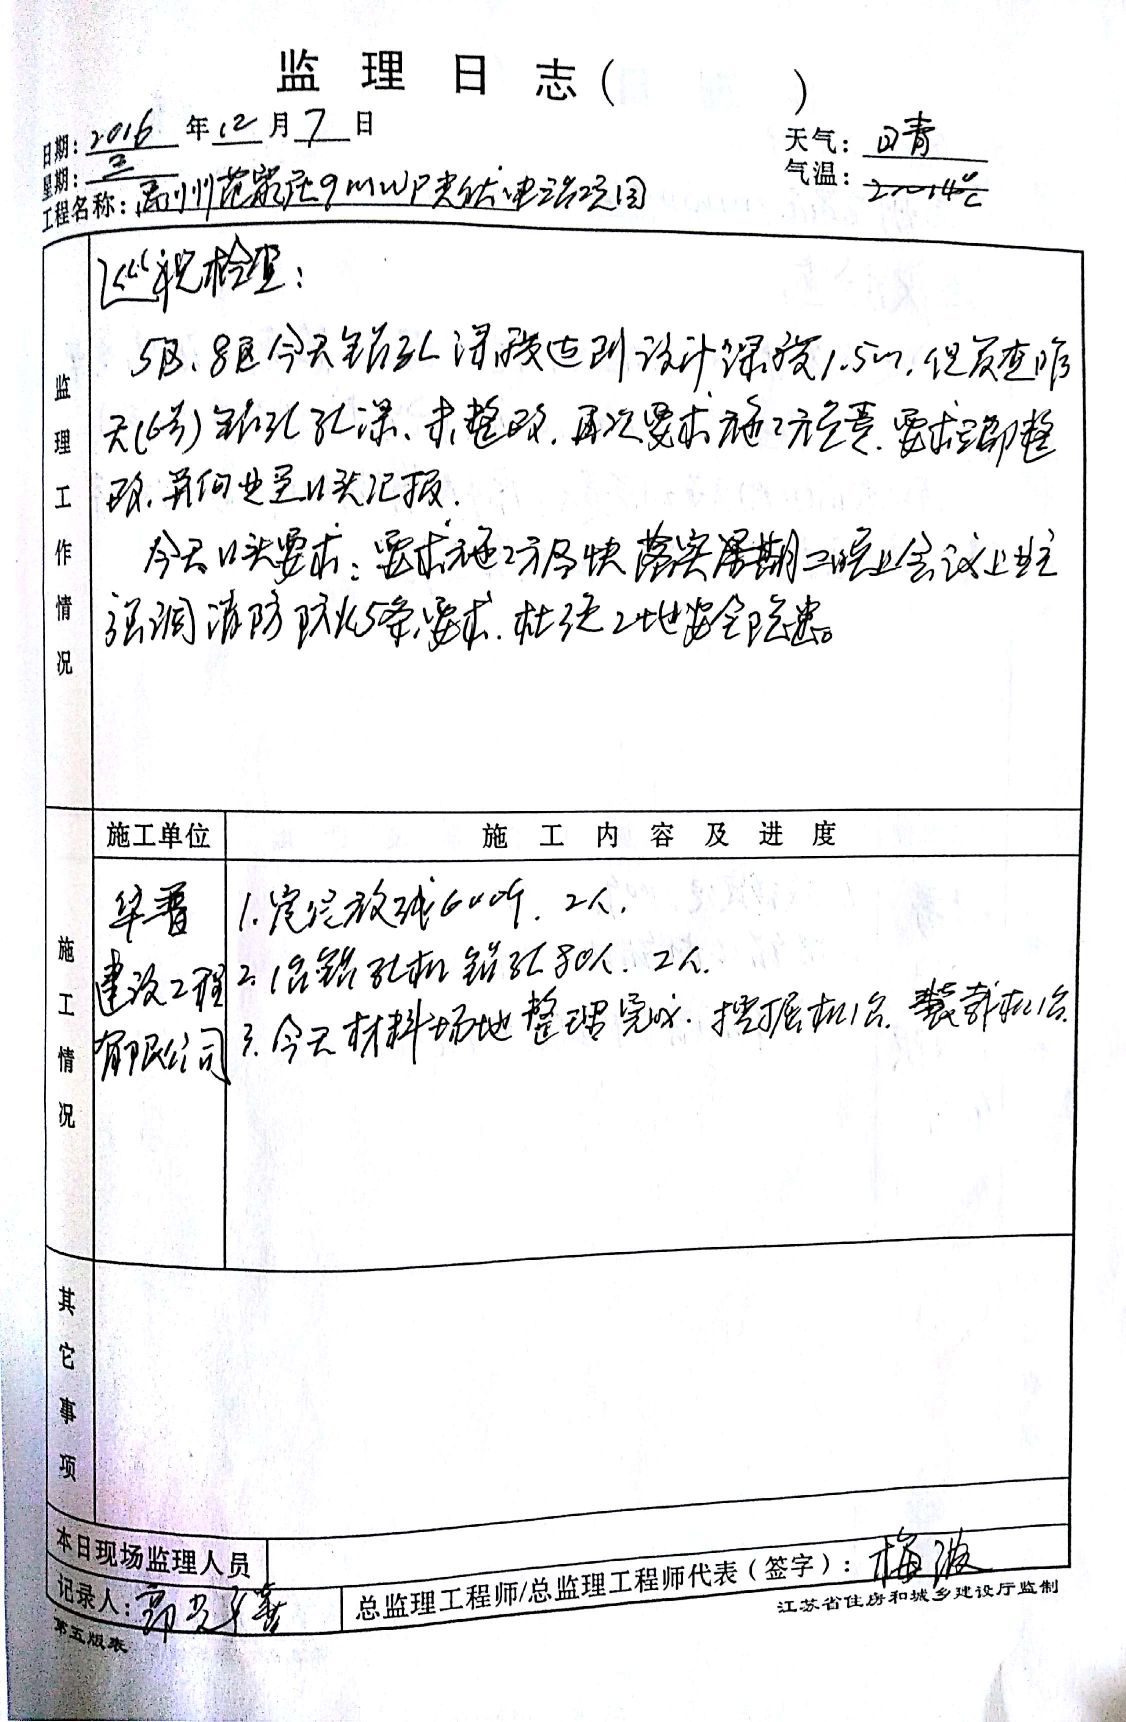 监理日志（ ）
日期：2016年12月7日
天气：晴
星期：三
气温：2~14℃
工程名称：禹州范家庄9MWP光伏电站项目
监理工作情况
巡视检查：
5区、8区今天钻孔深度达到设计深度1.5m，但复查昨
天（6号）钻孔孔深、未整改，再次要求施工方负责，要求立即整
改，并向业主口头汇报．
今天口头要求：要求施工方尽快落实星期二晚上会议上业主
强调消防防火5条要求，杜绝工地安全隐患。
施工单位 施工内容及进度
施工情况
华普
建设工程
有限公司
1. 定位放线600个．2人．
2. 1台钻孔机钻孔80个．2人．
3. 今天材料场地整理完成．挖掘机1台．装载机1台．
其它事项
本日现场监理人员
记录人：郭
总监理工程师/总监理工程师代表（签字）：梅波
第五版表
江苏省住房和城乡建设厅监制